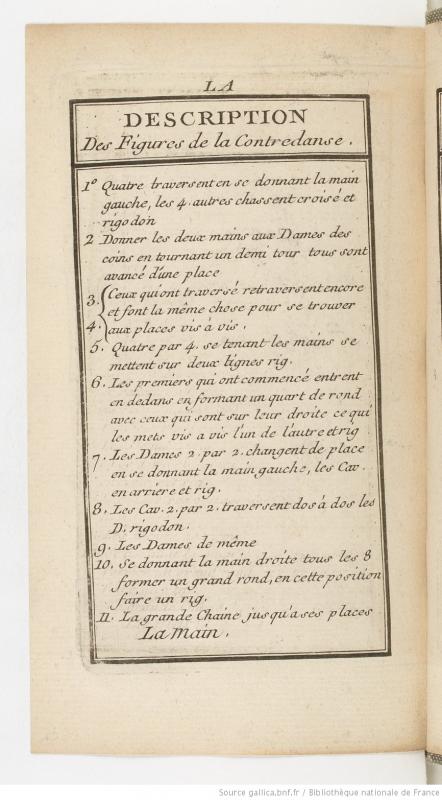 LA
DESCRIPTION
Des Figures de la Contredanse.
1º Quatre traversent en se donnant la main
gauche, les 4. autres chassent croisé et
rigodon
2 Donner les deux mains aux Dames des
coins en tournant un demi tour tous sont
avancé d'une place
3. Ceux qui ont traversé retraversent encore
et font la même chose pour se trouver
4. aux places vis à vis.
5. Quatre par 4. se tenant les mains se
mettent sur deux lignes rig.
6. Les premiers qui ont commencé entrent
en dedans en formant un quart de rond
avec ceux qui sont sur leur droite ce qui
les mets vis a vis l'un de l'autre et rig
7. Les Dames 2 par 2. changent de place
en se donnant la main gauche, les Cav.
en arriere et rig.
8. Les Cav. 2. par 2. traversent dos à dos les
D. rigodon.
9. Les Dames de même
10. Se donnant la main droite tous les 8
former un grand rond, en cette position
faire un rig.
11. La grande Chaine jusqu'a ses places
La Main.
Source gallica.bnf.fr / Bibliothèque nationale de France